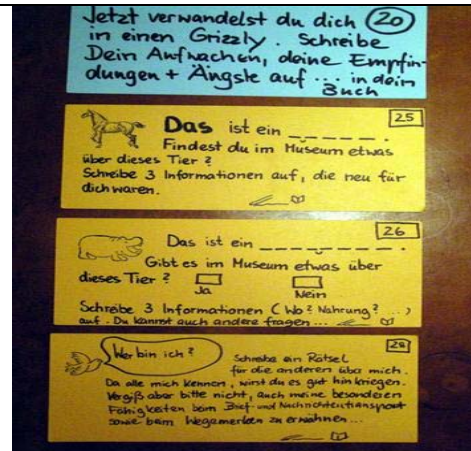 Jetzt verwandelst du dich 20
in einen Grizzly. Schreibe
Dein Aufwachen, deine Empfin-
dungen + Ängste auf ... in dein
Buch
25
Das ist ein _ _ _ _ _ _ .
Findest du im Museum etwas
über dieses Tier?
Schreibe 3 Informationen auf, die neu für
dich waren.
26
Das ist ein _ _ _ _ _ _ _ .
Gibt es im Museum etwas über
dieses Tier?
Ja Nein
Schreibe 3 Informationen (Wo? Nahrung? ...)
auf. Du kannst auch andere fragen ...
28
Wer bin ich?
Schreibe ein Rätsel
für die anderen über mich.
Da alle mich kennen, wirst du es gut hinkriegen.
Vergiß aber bitte nicht, auch meine besonderen
Fähigkeiten beim Brief- und Nachrichtentransport
sowie beim Wegemerken zu erwähnen ...